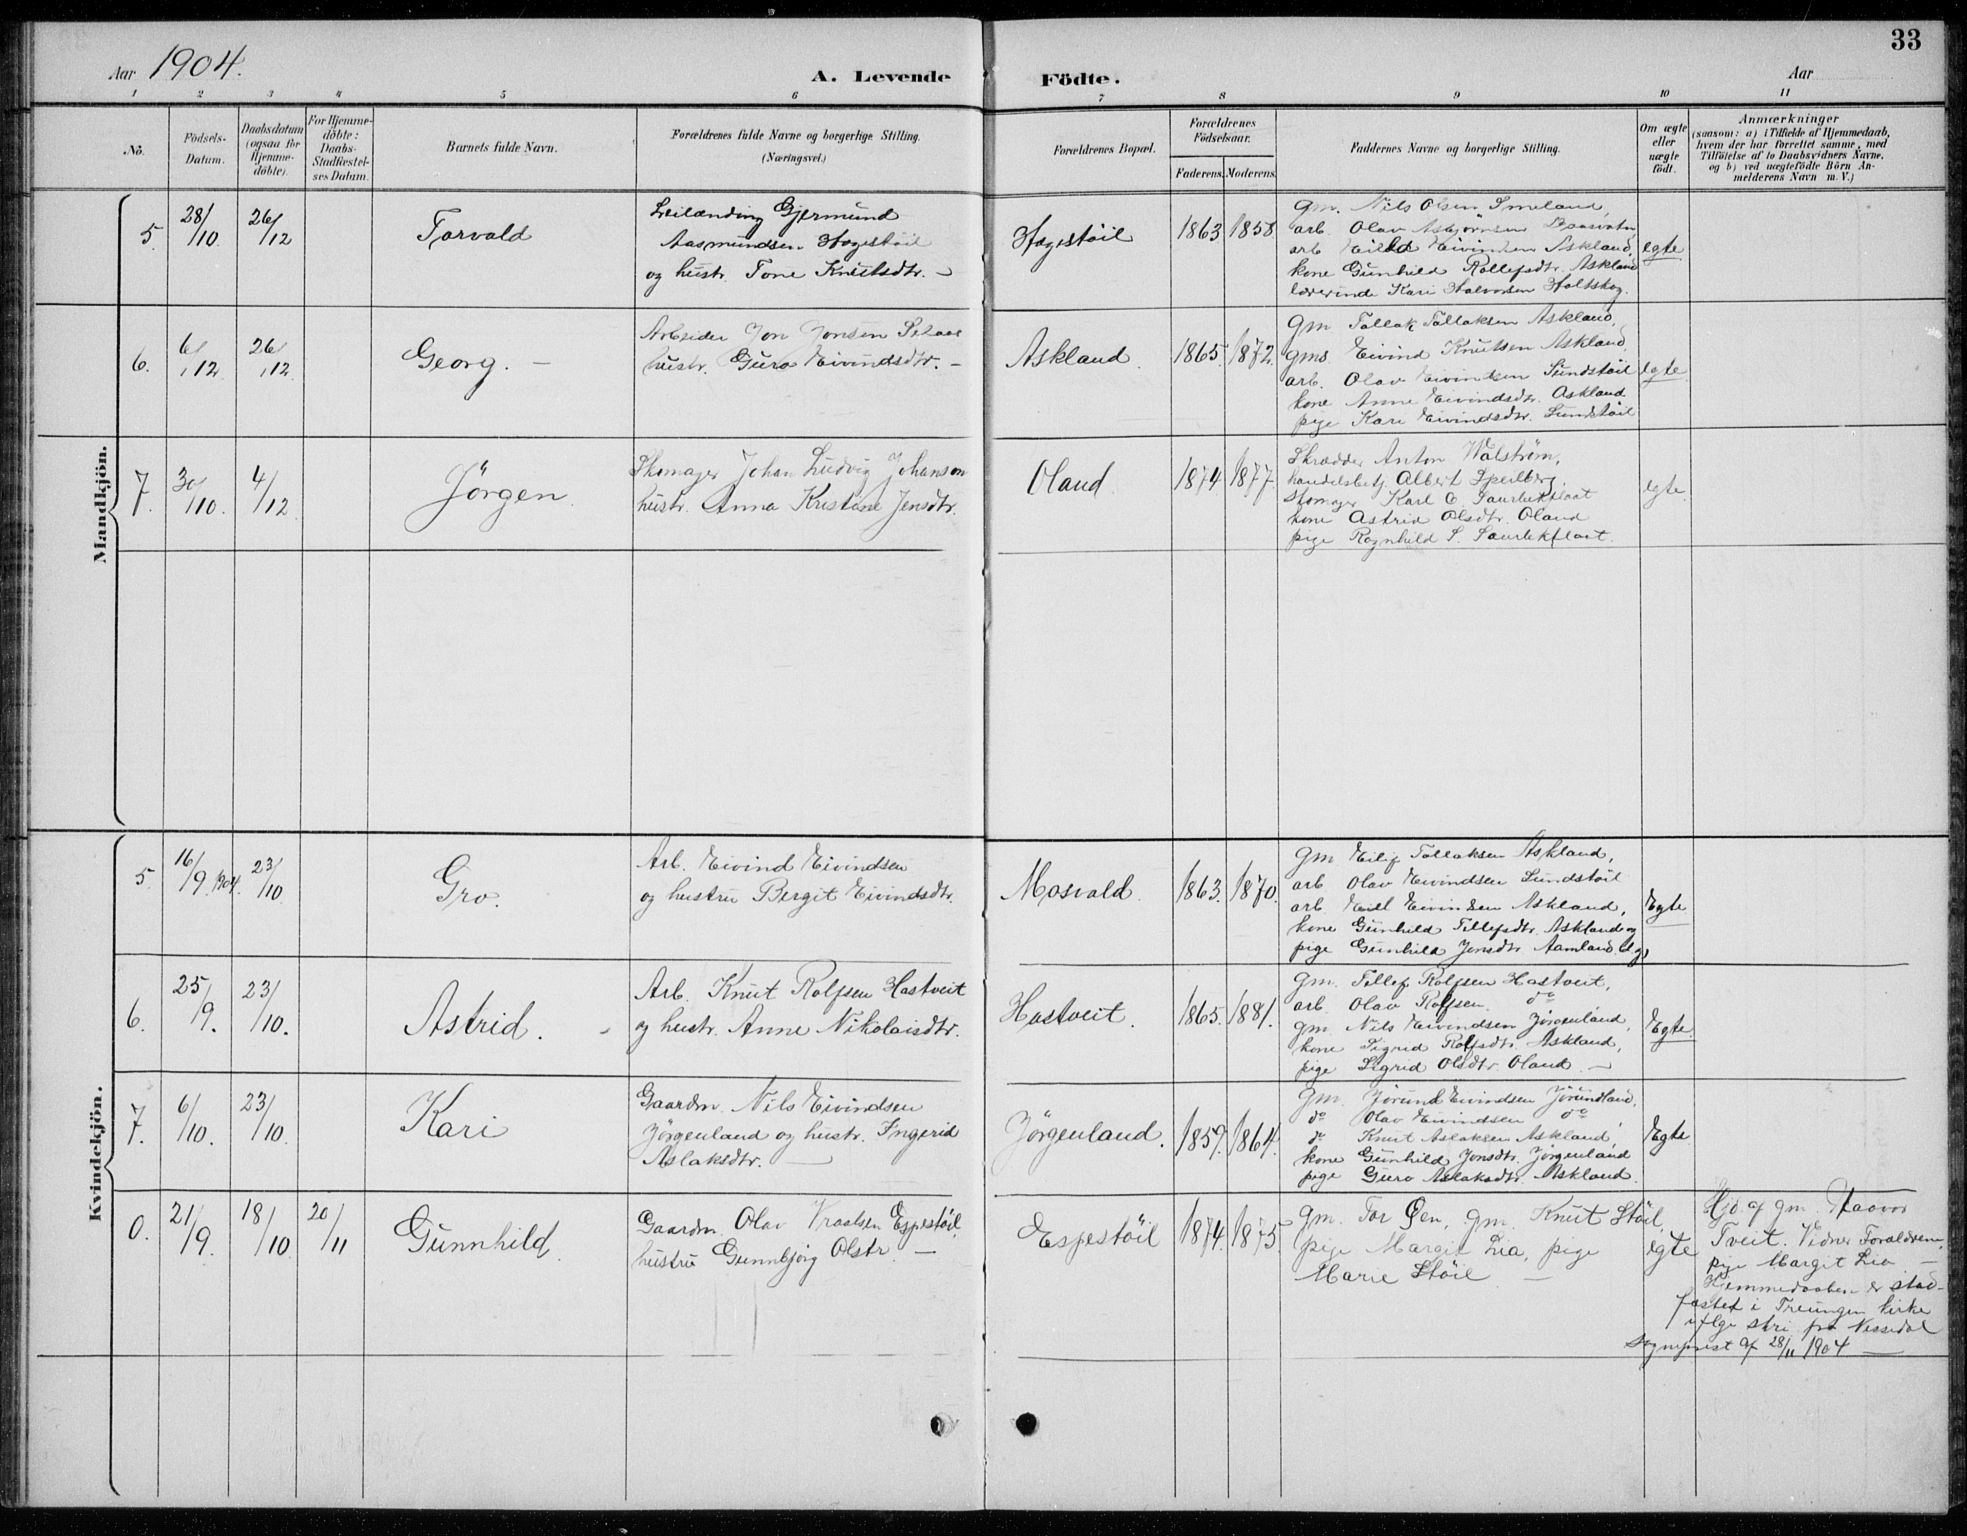 33
Aar 1904.
A. Levende Födte.
Aar
1 2 3 4 5 6 7 8 9 10 11
No.
Födsels-
Datum.
Daabsdatum
(ogsaa for
Hjemme-
döbte).
For Hjemme-
döbte:
Daabs-
Stadfæstel-
ses Datum.
Barnets fulde Navn.
Forældrenes fulde Navne og borgerlige Stilling.
(Næringsvei.)
Forældrenes Bopæl.
Forældrenes
Födselsaar.
Faderens. Moderens.
Faddernes Navne og borgerlige Stilling.
Om ægte
eller
uægte
födt.
Anmærkninger
(saasom: a) i Tilfælde af Hjemmedaab,
hvem der har forrettet samme, med
Tilföielse af to Daabsvidners Navne.
og b) ved uægtefödte Börn An-
melderens Navn m. V.)
Mandkjön.
5. 28/10. 26/12
Torvald
Leilænding Gjermund
Aasmundsen Hagestöil
og hustr. Tone Knutsdtr. -
Hagestöil
1863 1858
gm. Nils Olsen Smeland,
arb. Olav Asbjörnsen
arb Eivindsen Askland,
kone Gunhild Rollefsdtr. Askland
lærerinde Kari Halvorsen Holtskog.
egte
6. 6/12 26/12.
Georg. -
Arbeider Jon Jonsen
hustr. Guro Eivindsdtr. -
Askland
1865. 1872.
Gm Tallak Tallaksen Askland,
gms Eivind Knutsen Askland,
arb. Olav Eivindsen Sundstöil
kone Anne Eivindsdtr. Askland
pige Kari Eivindsdtr. Sundstöil
egte
7. 30/10. 4/12
Jörgen
Skomager Johan Ludvig Johanson
hustr. Anna Kristine Jensdtr.
Oland
1874 1877.
Skrædder Anton Walström,
handelsbetj. Albert Speilberg,
skomager Karl O. Saurlekflaat
kone Astrid Olsdtr. Oland
pige Ragnhild S. Saurlekflaat.
egte.
Kvindekjön.
5. 16/9. 1904. 23/10
Gro.
Arb. Eivind Eivindsen
og hustru Bergit Eivindsdtr.
Mosvald.
1863. 1870.
gm Eilif Tallaksen Askland,
arb Olav Eivindsen Sundstöil
arb. Eivindsen Askland,
kone Gunhild Tellefsdtr. Askland og
pige Gunhild Jonsdtr Aamland
Egte
6. 25/9. 23/10.
Astrid. -
Arb. Knut Rolfsen Hastveit
og hustr. Anne Nikolaisdtr.
Hastveit.
1865. 1881.
gm. Tellef Rolfsen Hastveit,
arb. Olav Rolfsen do
gm. Nils Eivindsen Jörgenland,
kone Sigrid Rolfsdtr. Askland,
pige Sigrid Olsdtr. Oland. -
Egte.
7. 6/10. 23/10.
Kari
Gaardm. Nils Eivindsen
Jörgenland og hustr. Ingerid
Aslaksdtr. -
Jörgenland.
1859. 1864.
gm. Jörund Eivindsen Jörundland,
do Olav Eivindsen do,
do Knut Aslaksen Askland,
kone Gunhild Jonsdtr. Jörgenland
pige Guro Aslaksdtr. Askland.
Egte
0. 21/9. 18/10 20/11
Gunnhild
Gaardm. Olav Vraalsen Espestöil,
hustru Gunnbjörg Olstr -
Espestöil
1874. 1875.
gm. Tor Öen, gm. Knut Stöil,
pige Margit Lia, pige
Marie Stöil -
egte
Hjd. af gm.
Tveit. Vidner Forældrene,
pige Margit Lia. -
Hjemmedaaben er stad-
fæstet i Treungen kirke
iflge skri fra Nissedal
sogneprest af 28/11 1904 -